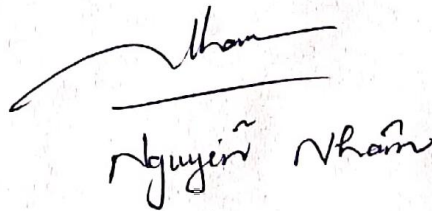 Nham
Nguyễn Nhâm